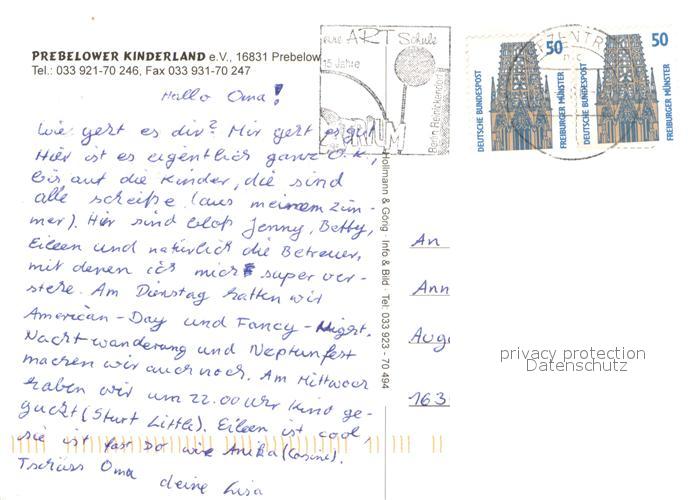 PREBELOWER KINDERLAND e.V., 16831 Prebelow
Tel.: 033 921-70 246, Fax 033 931-70 247
Hallo Oma!
Wie geht es dir? Mir geht es gut
Hier ist es eigentlich ganz O.K.,
bis auf die Kinder, die sind
alle scheiße (aus meinem Zim-
mer). Hier sind bloß Jenny, Betty,
Eileen und natürlich die Betreuer,
mit denen ich mich super ver-
stehe. Am Dienstag hatten wir
American-Day und Fancy-Night.
Nachtwanderung und Neptunfest
machen wir auch noch. Am Mittwoch
haben wir um 22.00 Uhr Kino ge-
guckt (Stuart Little). Eileen ist cool,
sie ist fast so wie Anika (Cosine).
Tschüss Oma deine Lisa
Hollmann & Görig · Info & Bild · Tel: 033 923 - 70 494
ART Schule
15 Jahre
Berlin-Reinickendorf
50
DEUTSCHE BUNDESPOST
FREIBURGER MÜNSTER
50
DEUTSCHE BUNDESPOST
FREIBURGER MÜNSTER
An
Ann
Aug
163
privacy protection
Datenschutz